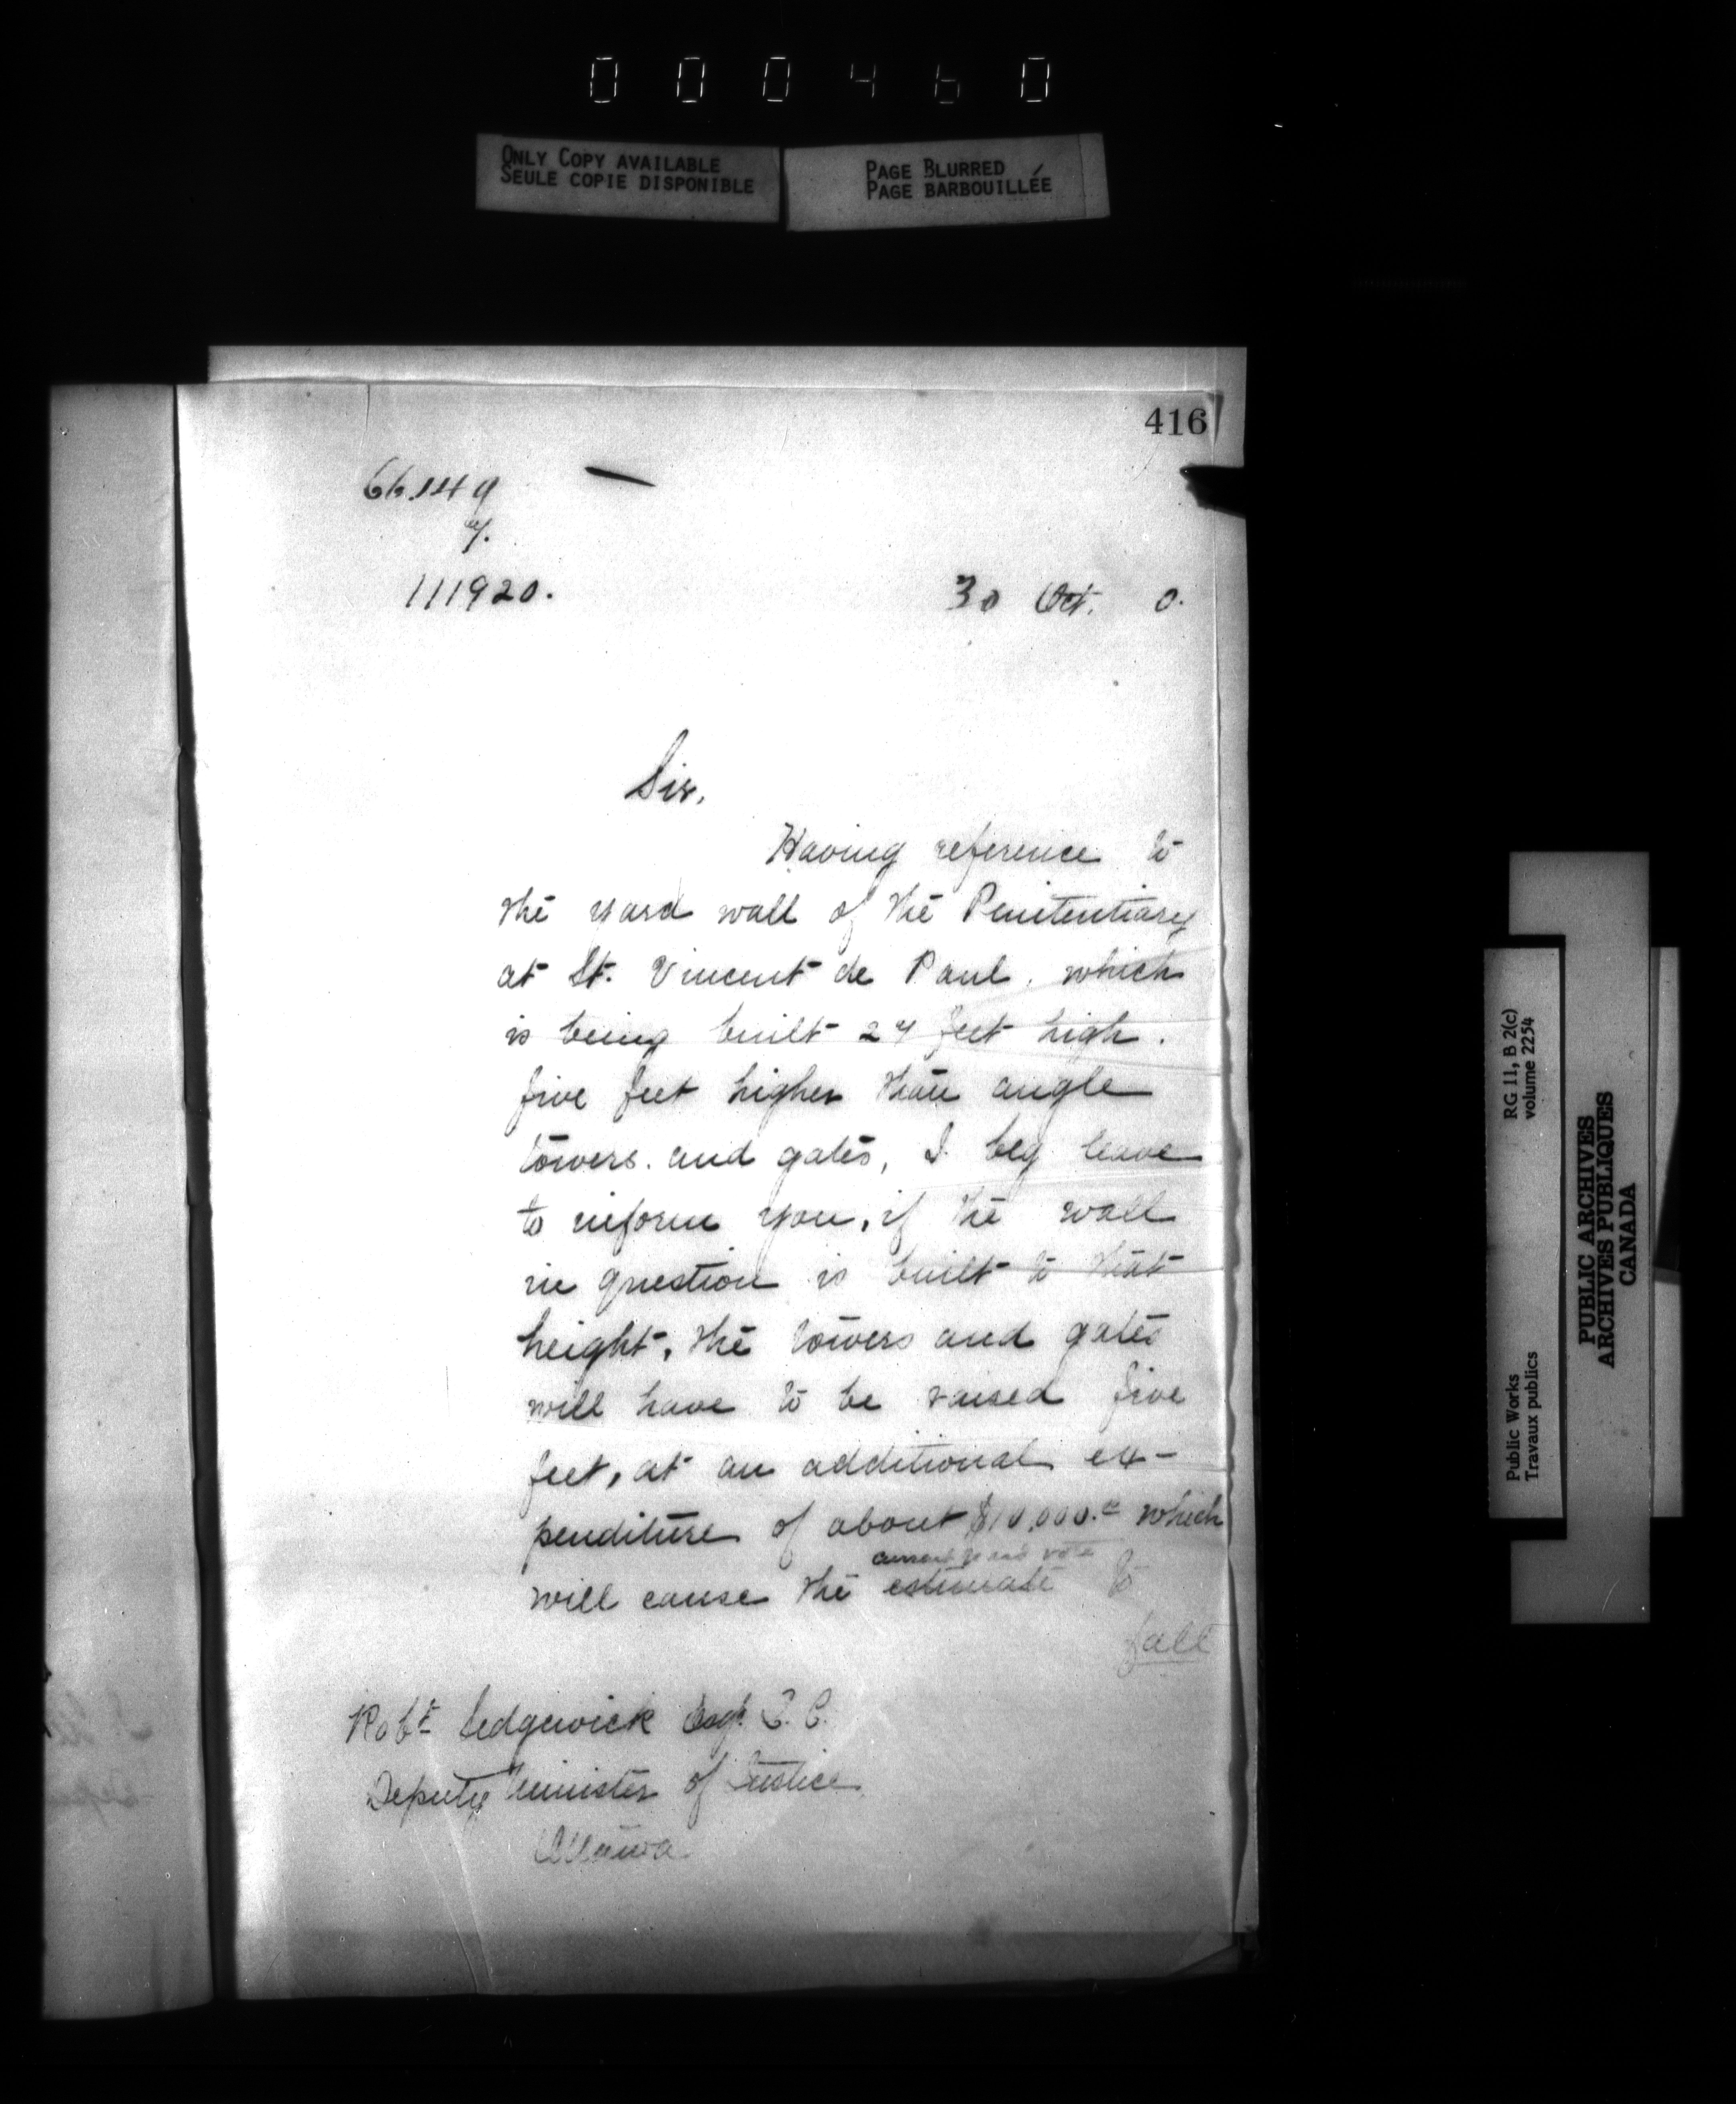 000460
ONLY COPY AVAILABLE
SEULE COPIE DISPONIBLE
PAGE BLURRED
PAGE BARBOUILLÉE
416
66149
111920.
30 Oct. 0.
Sir,
Having reference to
the yard wall of the Penitentiary
at St. Vincent de Paul, which
is being built 24 feet high.
five feet higher than angle
towers. and gates, I beg leave
to inform you, if the wall
in question is built to that
height, the towers and gates
will have to be raised five
feet, at an additional ex-
penditure of about $10,000.00 which
current year's vote
will cause the estimate to
fall
Robt Sedgewick Esqr. Q.C.
Deputy Minister of Justice
Ottawa
RG 11, B 2(c)
volume 2254
Public Works
Travaux publics
PUBLIC ARCHIVES
ARCHIVES PUBLIQUES
CANADA